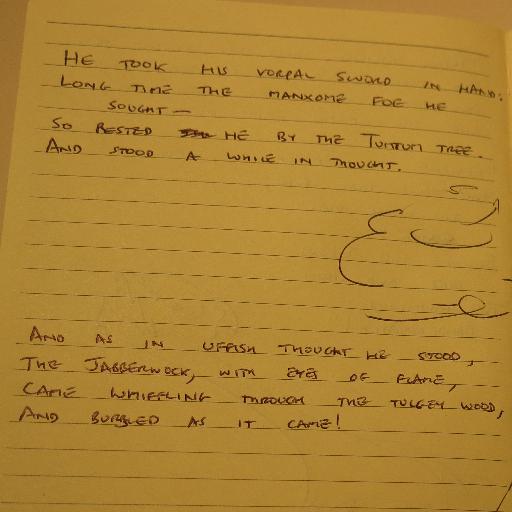 HE TOOK HIS VORPAL SWORD IN HAND:
LONG TIME THE MANXOME FOE HE
SOUGHT —
SO RESTED HE BY THE TUMTUM TREE.
AND STOOD A WHILE IN THOUGHT.
AND AS IN UFFISH THOUGHT HE STOOD,
THE JABBERWOCK, WITH EYES OF FLAME,
CAME WHIFFLING THROUGH THE TULGEY WOOD,
AND BURBLED AS IT CAME!